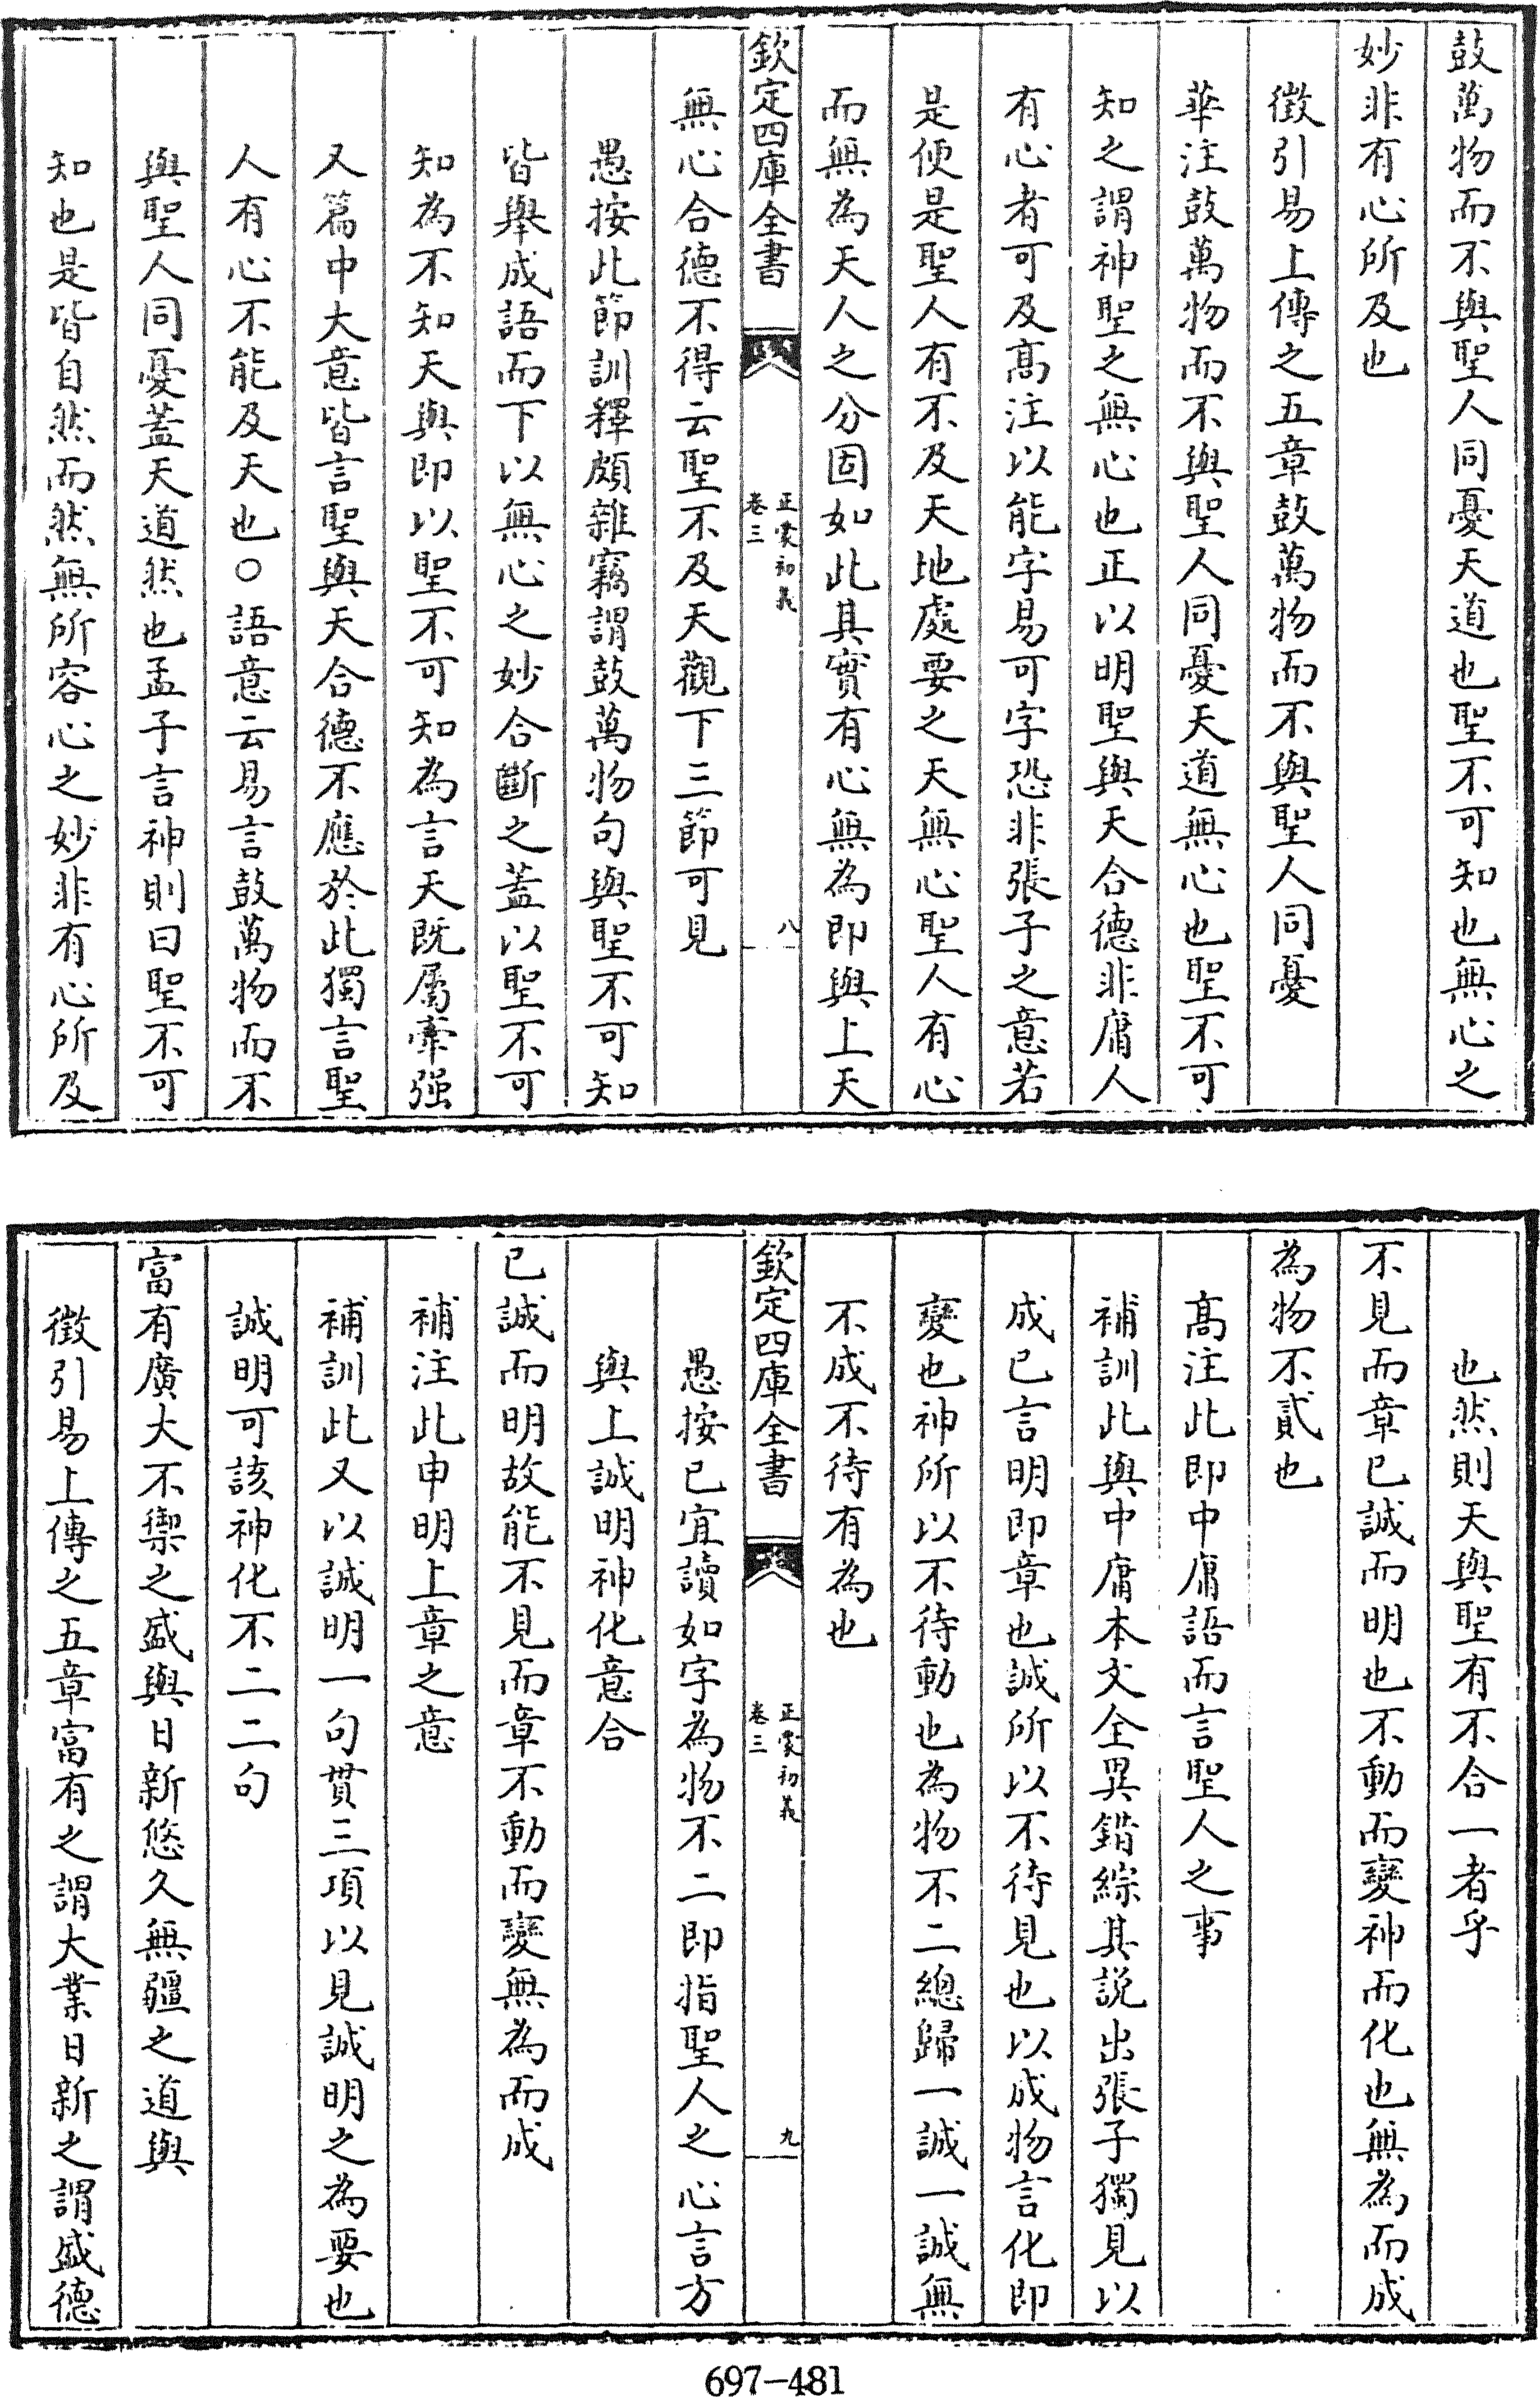 鼓萬物而不與聖人同憂天道也聖不可知也無心之
妙非有心所及也
徴引易上傳之五章鼓萬物而不與聖人同憂
華注鼓萬物而不與聖人同憂天道無心也聖不可
知之謂神聖之無心也正以明聖與天合德非庸人
有心者可及髙注以能字易可字恐非張子之意若
是便是聖人有不及天地處要之天無心聖人有心
而無為天人之分固如此其實有心無為即與上天
欽定四庫全書
正蒙初義
卷三
八
無心合德不得云聖不及天觀下三節可見
愚按此節訓釋頗雜竊謂鼓萬物句與聖不可知
皆舉成語而下以無心之妙合斷之蓋以聖不可
知為不知天與即以聖不可知為言天既屬牽强
又篇中大意皆言聖與天合德不應於此獨言聖
人有心不能及天也○語意云易言鼓萬物而不
與聖人同憂蓋天道然也孟子言神則曰聖不可
知也是皆自然而然無所容心之妙非有心所及
也然則天與聖有不合一者乎
不見而章已誠而明也不動而變神而化也無為而成
為物不貳也
髙注此即中庸語而言聖人之事
補訓此與中庸本文全異錯綜其説出張子獨見以
成已言明即章也誠所以不待見也以成物言化即
變也神所以不待動也為物不二總歸一誠一誠無
不成不待有為也
欽定四庫全書
正蒙初義
卷三
九
愚按已宜讀如字為物不二即指聖人之心言方
與上誠明神化意合
已誠而明故能不見而章不動而變無為而成
補注此申明上章之意
補訓此又以誠明一句貫三項以見誠明之為要也
誠明可該神化不二二句
富有廣大不禦之盛與日新悠久無疆之道與
徴引易上傳之五章富有之謂大業日新之謂盛德
697-481